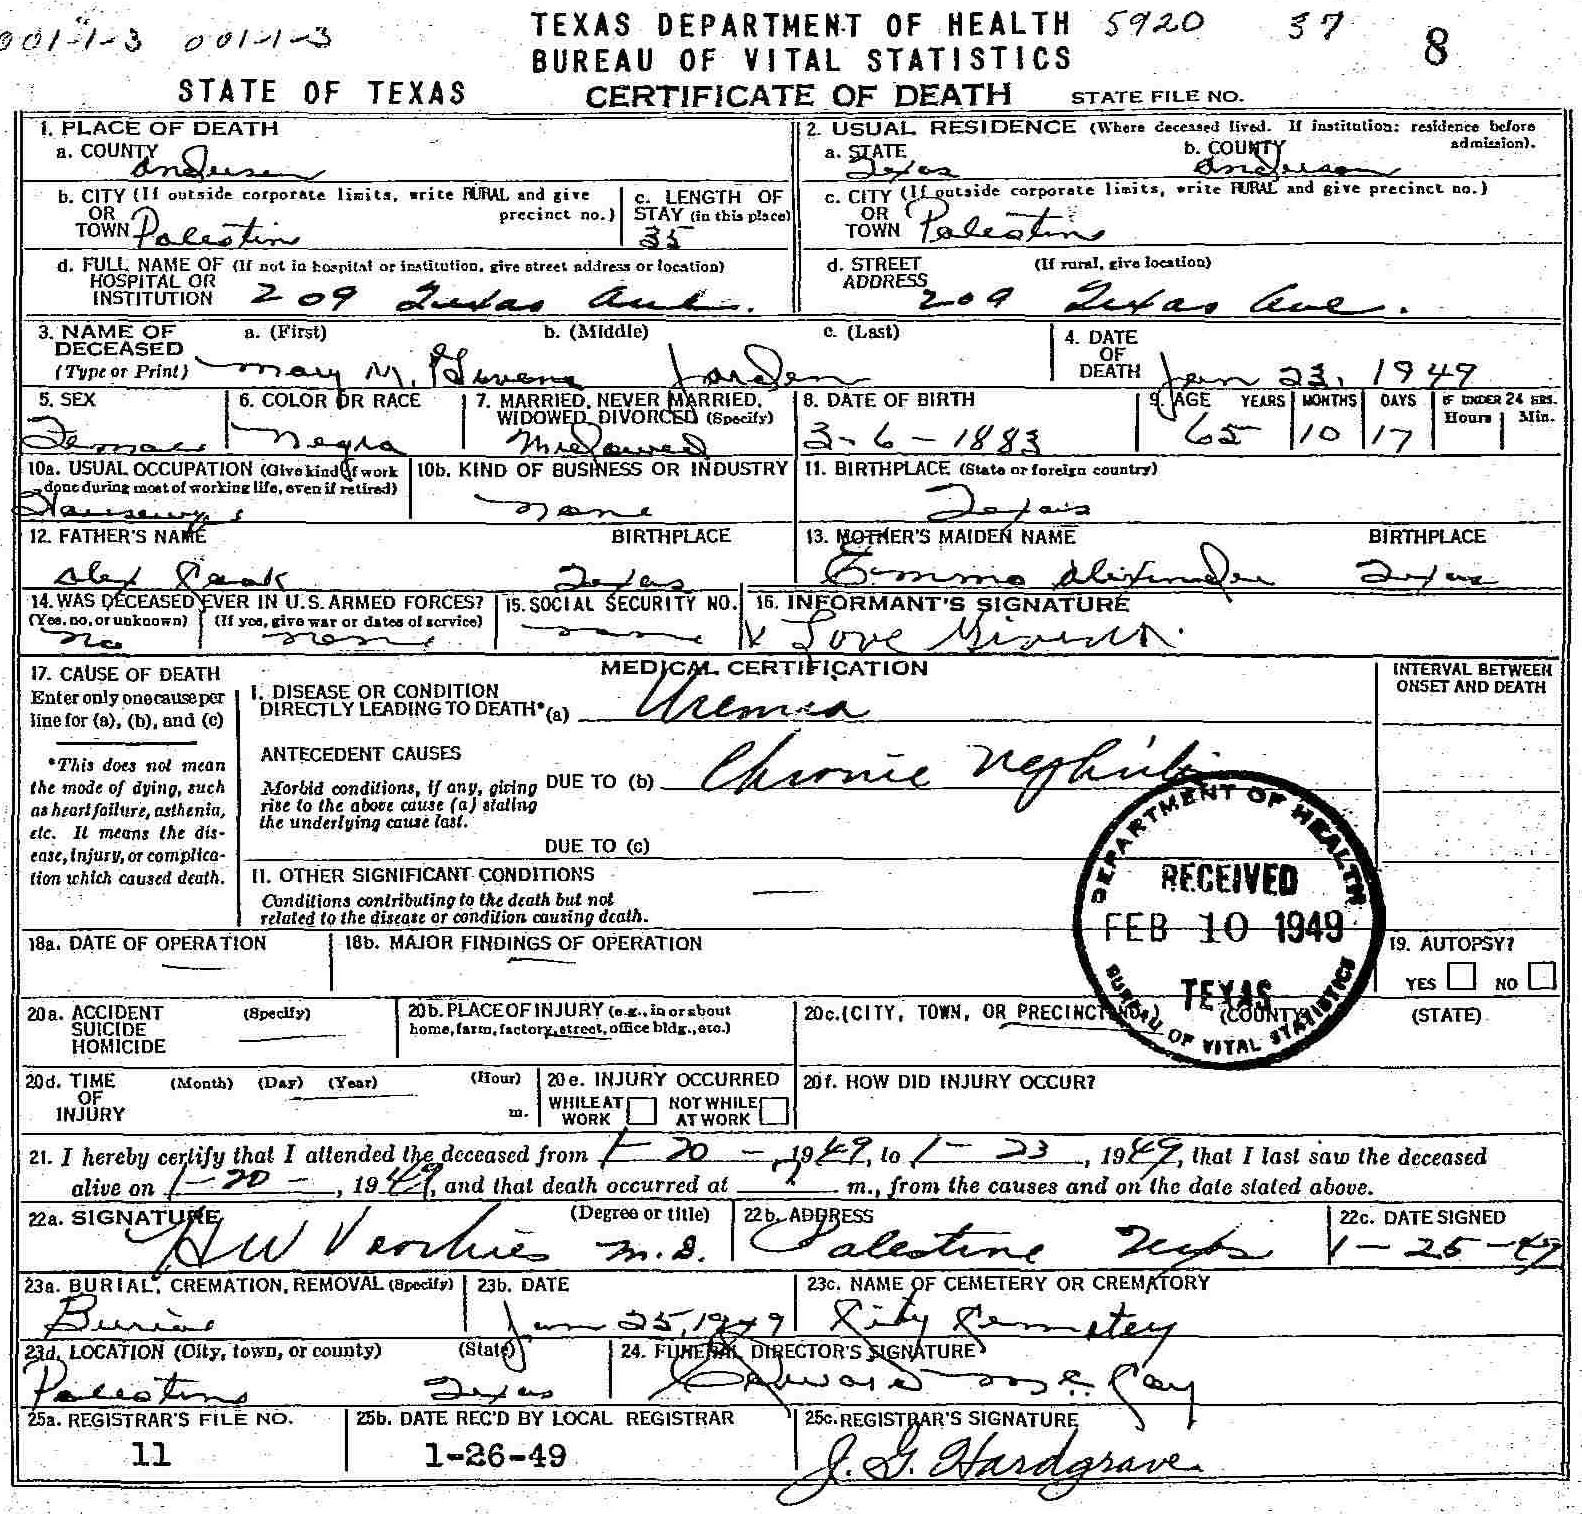 001-1-3 001-1-3
TEXAS DEPARTMENT OF HEALTH 5920 37 8
BUREAU OF VITAL STATISTICS
STATE OF TEXAS CERTIFICATE OF DEATH STATE FILE NO.
1. PLACE OF DEATH
a. COUNTY Anderson
2. USUAL RESIDENCE (Where deceased lived. If institution: residence before admission).
a. STATE Texas b. COUNTY Anderson
b. CITY (If outside corporate limits, write RURAL and give precinct no.)
OR
TOWN Palestine
c. LENGTH OF
STAY (in this place)
35
c. CITY (If outside corporate limits, write RURAL and give precinct no.)
OR
TOWN Palestine
d. FULL NAME OF (If not in hospital or institution, give street address or location)
HOSPITAL OR
INSTITUTION 209 Texas Ave.
d. STREET (If rural, give location)
ADDRESS 209 Texas Ave.
3. NAME OF a. (First) b. (Middle) c. (Last)
DECEASED
(Type or Print) Mary M. Jorden
4. DATE
OF
DEATH Jan 23, 1949
5. SEX
Female
6. COLOR OR RACE
Negro
7. MARRIED, NEVER MARRIED,
WIDOWED, DIVORCED (Specify)
Widowed
8. DATE OF BIRTH
3-6-1883
9. AGE YEARS MONTHS DAYS IF UNDER 24 HRS.
Hours Min.
65 10 17
10a. USUAL OCCUPATION (Give kind of work
done during most of working life, even if retired)
Housewife
10b. KIND OF BUSINESS OR INDUSTRY
None
11. BIRTHPLACE (State or foreign country)
Texas
12. FATHER'S NAME BIRTHPLACE
Alex Texas
13. MOTHER'S MAIDEN NAME BIRTHPLACE
Emma Alexander Texas
14. WAS DECEASED EVER IN U.S. ARMED FORCES?
(Yes, no, or unknown) (If yes, give war or dates of service)
No None
15. SOCIAL SECURITY NO.
None
16. INFORMANT'S SIGNATURE
X Love
17. CAUSE OF DEATH
Enter only one cause per
line for (a), (b), and (c)
*This does not mean
the mode of dying, such
as heart failure, asthenia,
etc. It means the dis-
ease, injury, or complica-
tion which caused death.
MEDICAL CERTIFICATION
I. DISEASE OR CONDITION
DIRECTLY LEADING TO DEATH* (a) Uremia
ANTECEDENT CAUSES
Morbid conditions, if any, giving
rise to the above cause (a) stating
the underlying cause last.
DUE TO (b) Chronic Nephritis
DUE TO (c)
II. OTHER SIGNIFICANT CONDITIONS
Conditions contributing to the death but not
related to the disease or condition causing death.
INTERVAL BETWEEN
ONSET AND DEATH
DEPARTMENT OF HEALTH
RECEIVED
FEB 10 1949
TEXAS
BUREAU OF VITAL STATISTICS
18a. DATE OF OPERATION
18b. MAJOR FINDINGS OF OPERATION
19. AUTOPSY?
YES NO
20a. ACCIDENT (Specify)
SUICIDE
HOMICIDE
20b. PLACE OF INJURY (e.g., in or about
home, farm, factory, street, office bldg., etc.)
20c. (CITY, TOWN, OR PRECINCT NO.) (COUNTY) (STATE)
20d. TIME (Month) (Day) (Year) (Hour)
OF
INJURY m.
20e. INJURY OCCURRED
WHILE AT NOT WHILE
WORK AT WORK
20f. HOW DID INJURY OCCUR?
21. I hereby certify that I attended the deceased from 1-20-, 1949, to 1-23, 1949, that I last saw the deceased
alive on 1-20-, 1949, and that death occurred at ? m., from the causes and on the date stated above.
22a. SIGNATURE (Degree or title)
H W Voorhies M.D.
22b. ADDRESS
Palestine Texas
22c. DATE SIGNED
1-25-49
23a. BURIAL, CREMATION, REMOVAL (Specify)
Burial
23b. DATE
Jan 25, 1949
23c. NAME OF CEMETERY OR CREMATORY
City Cemetery
23d. LOCATION (City, town, or county) (State)
Palestine Texas
24. FUNERAL DIRECTOR'S SIGNATURE
Edward McCoy
25a. REGISTRAR'S FILE NO.
11
25b. DATE REC'D BY LOCAL REGISTRAR
1-26-49
25c. REGISTRAR'S SIGNATURE
J. G. Hardgrave